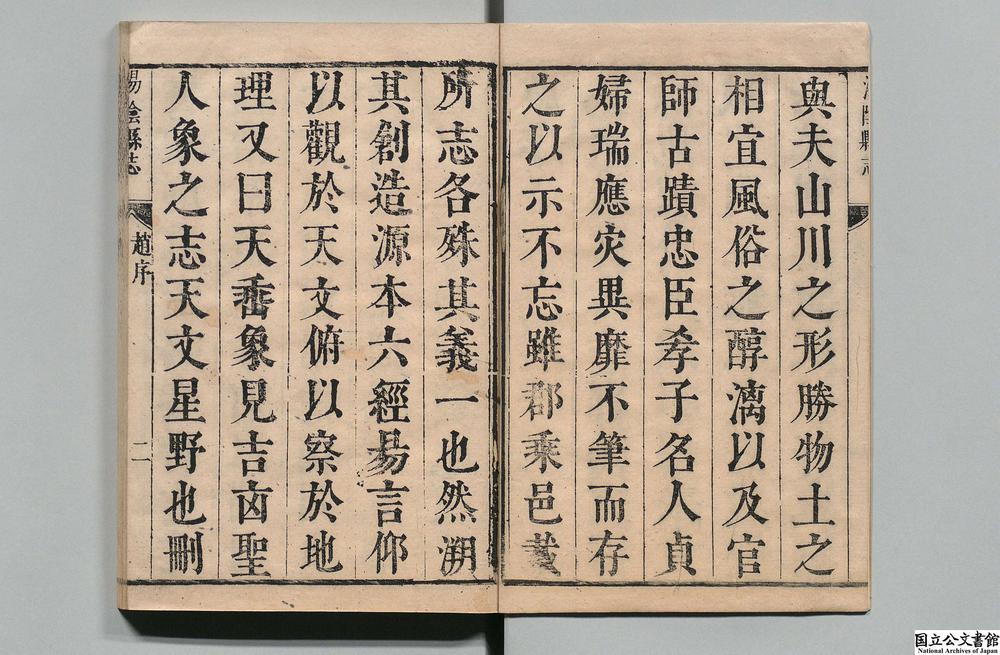 與夫山川之形勝物土之
相宜風俗之醇漓以及官
師古蹟忠臣孝子名人貞
婦瑞應灾異靡不筆而存
之以示不忘雖郡乘邑載
所志各殊其義一也然溯
其創造源本六經易言仰
以觀於天文俯以察於地
理又曰天垂象見吉凶聖
人象之志天文星野也刪
湯陰縣志
趙序
二
国立公文書館
National Archives of Japan